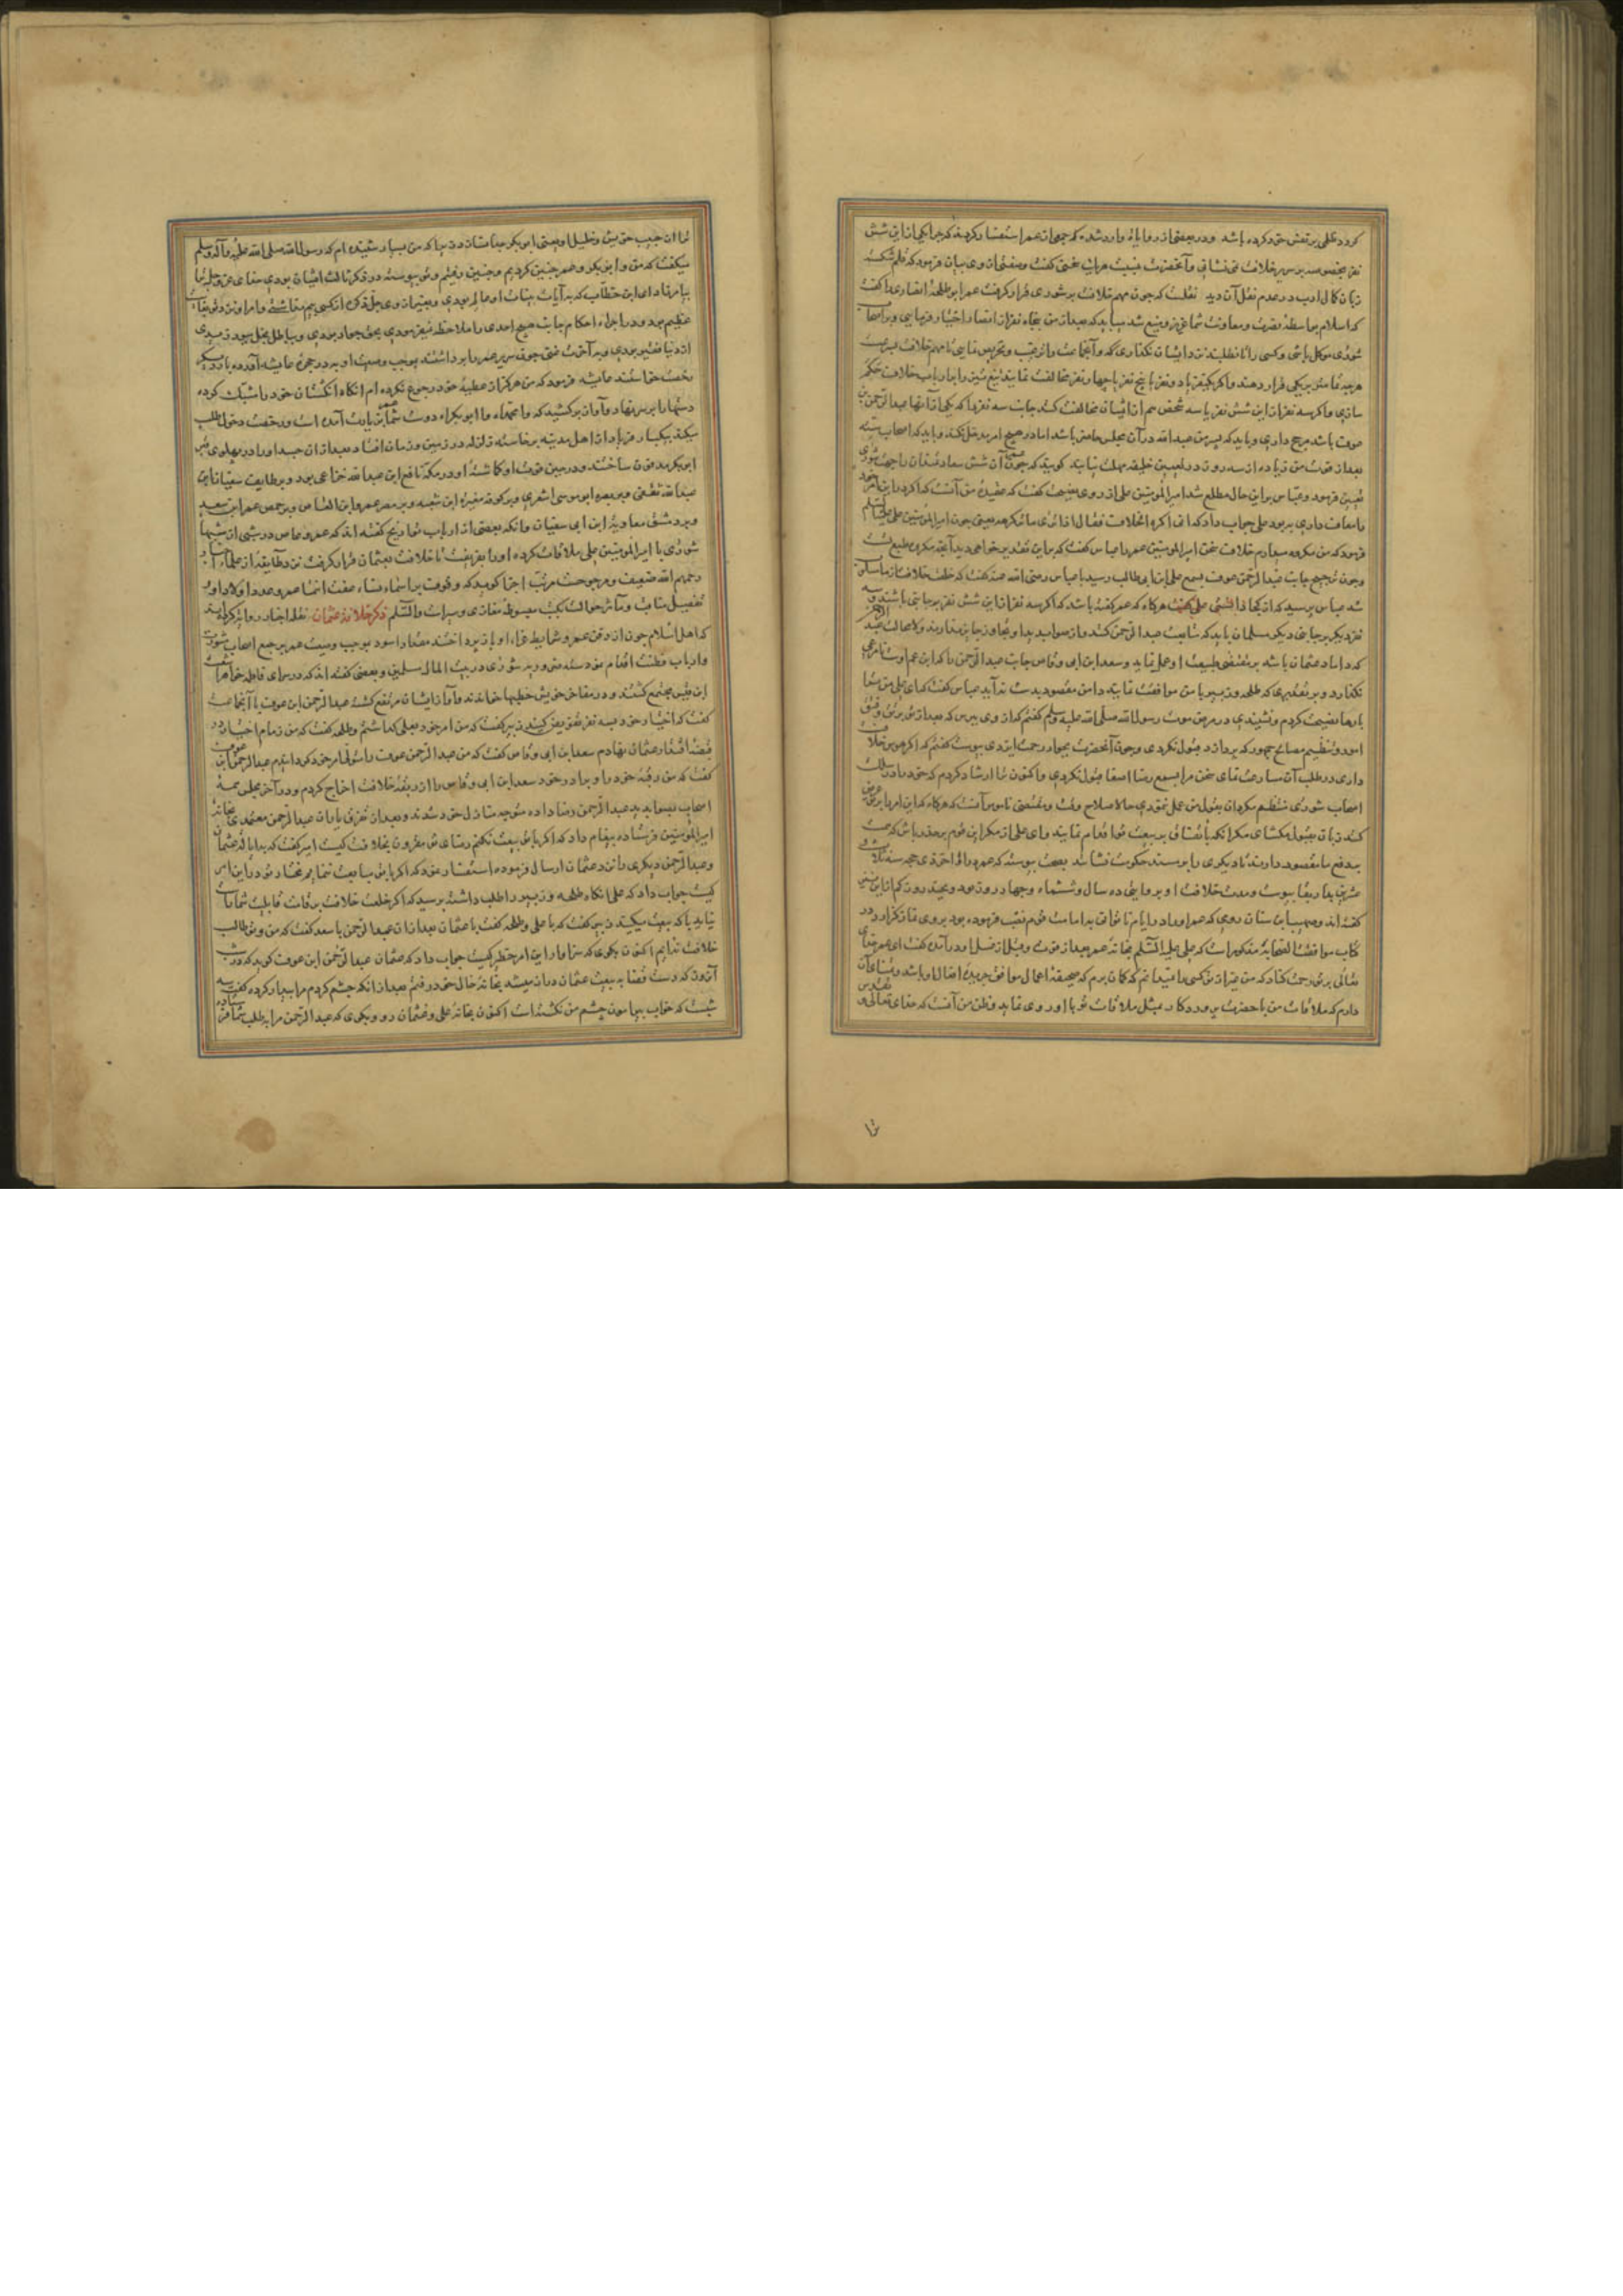 کردد ظلمی بر نفس خود کرده باشد و در بعضی از روایات وارد شده که جمعی از عمر استفسار کردند که چرا یکی از این شش
نفر بخصوصه بر سریر خلافت نمی نشانی و آنحضرت بنسبت هر یک سخنی گفت
زبان کمال ادب در عدم نقل آن دید نقلست که چون مهم خلافت بر شوری قرار کرفت عمر ابو طلحه انصاری را گفت
که اسلام بواسطه نصرت و معاونت شما عزیز و منیع شد میباید که بعد از من پنجاه نفر از انصار اختیار فرمایی و بر اصحاب
شوری موکل باشی و کسی را تا نطلبند نزد ایشان نکذاری که و آنجماعت را ترغیب و تحریص نمایی تا مهم خلافت
هر چه تمامتر بر یکی قرار دهند و اگر یکنفر با دو نفر یا پنج نفر با چهار نفر مخالفت نمایند
سازی و اگر سه نفر از این شش نفر با سه شخص هم از ایشان مخالفت کنند جانب سه نفر را که یکی از آنها عبدالرحمن بن
عوف باشد مرجح داری و باید که پسر من عبدالله در آن مجلس حاضر باشد اما در هیچ امر مدخل نکند و باید که اصحاب
بعد از فوت من زیاده از سه روز در تعیین خلیفه مهلت نیابند کویند که چون آن شش سعادتمند را جهت شوری
تعیین فرمود و عباس بر این حال مطلع شد امیرالمومنین علی را از روی نصیحت گفت که عقیده من آنست که
فرمود که من مکروه میدارم خلاف سخن امیرالمومنین عمر را عباس گفت که بنابرین تقدیر خواهی دید آنچه مکروه طبع تست
و چون ترجیح جانب عبدالرحمن عوف بسمع علی ابن ابی طالب رسید با عباس رضی الله عنه گفت که خلعت خلافت از ما مسلوب
شد عباس پرسید که از کجا دانستی علی گفت هر گاه که عمر گفته باشد که اگر سه نفر از این شش نفر بر جانبی باشند و سه
نفر دیگر بر جانبی دیکر مسلمانان باید که متابعت عبدالرحمن کنند و از صوابدید او تجاوز جایز ندارند و لا محاله عبدالرحمن
که داماد عثمان باشد بر مقتضی طبیعت او عمل نماید و سعد ابن ابی وقاص جانب عبدالرحمن را که ابن عم اوست نامرعی
نکذارد و بر تقدیری که طلحه و زبیر با من موافقت نمایند دامن مقصود بدست نه آید عباس گفت که ای علی من ترا
بارها نصیحت کردم و نشنیدی در مرض موت رسول الله صلی الله علیه وسلم گفتم که از وی بپرس که بعد از تو
امور و تنظیم مصالح جمهور که پردازد قبول نکردی و چون آنحضرت بجوار رحمت ایزدی پیوست گفتم که اگر هوس خلافت
داری در طلب آن مسارعت نمای سخن مرا بسمع رضا اصغا قبول نکردی و اکنون ترا ارشاد کردم که خود را در سلک
اصحاب شوری منتظم مکردان بقول من عمل ننمودی
کنند زبان بقبول مکشای مکر آنکه باتفاق بر بیعت تو اقدام نمایند و ای علی از مکر این قوم بر حذر باش که
عمر داد آخر ذی حجه سنه ثلاث
عشرین بدار بقا پیوست و مدت خلافت او بروایتی ده سال و ششماه و چهار روز بود
گفته اند و صهیب ابن سنان رومی که عمر او را در ایام ناتوانی بامامت قوم نصب فرموده بود بر وی نماز کزارد و در
کتاب موافقت الصحابه مذکور است که علی علیه السلام بخانه عمر بعد از فوت و قبل از غسل او در آمد و گفت ای عمر خدای
تعالی بر تو رحمت کناد که من غیر از تو کسی را نمیدانم که کمان برم که صحیفه اعمال موافق جریده افعال او باشد و تمنای آن
دارم که ملاقات من با حضرت پروردکار بمثل ملاقات تو با او روی نماید و ظن من آنست که خدای تعالی و تقدس
ترا از حبیب خویش و خلیل او یعنی ابو بکر جدا نسازد زیرا که من بسیار شنیده ام که رسول الله صلی الله علیه وآله وسلم
میگفت که من و ابو بکر و عمر چنین کردیم و چنین رفتیم و تو پیوسته در ذکر ثالث ایشان بودی خدای عز و جل ترا
بیامرزاد ای ابن خطاب که بآیات بینات او عالم بودی و بغیر از وی جل ذکره از کسی بیم نداشتی و امر او نزد تو بغایت
عظیم بود و در اجراء احکام جانب هیچ احدی را ملاحظه نمیفرمودی بحق جواد بودی و بباطل بخل میورزیدی
از دنیا فقیر بودی و بآخرت غنی چون سریر عمر را برداشتند بموجب وصیت او بدر حجره عایشه آورده بار دیگر
رخصت خواستند عایشه فرمود که من هرگز از عطیه خود رجوع نکرده ام آنگاه انگشتان خود را مشبک کرده
دستها را بر سر نهاد و آواز بر کشید که وا محمداه وا ابو بکراه دوست شما عمر بزیارت آمده است و رخصت دخول طلب
میکند بیکبار فریاد از اهل مدینه برخاسته زلزله در زمین و زمان افتاد بعد از آن جسد او را در پهلوی پس
ابو بکر مدفون ساختند و در حین فوت او گماشته او در مکه نافع ابن عبدالله خزاعی بود و بر طایف سفیان ابن
عبدالله ثقفی و ببصره ابو موسی اشعری و بر کوفه مغیره ابن شعبه و بر مصر عمرو ابن العاص و بر حمص عمر ابن سعید
و بر دمشق معاویه ابن ابی سفیان و آنکه بعضی از ارباب تواریخ گفته اند که عمرو عاص در شبی از شبها
شوری با امیرالمومنین علی ملاقات کرده او را بفریفت تا خلافت بعثمان قرار کرفت نزد طایفه از علماء
رحمهم الله ضعیف و مرجوحست
تفصیل مناقب و مآثر حوالت بکتب مبسوطه مغازی و سیر است والسلام ذکر خلافت عثمان نقله اخبار روایت کرده اند
که اهل اسلام چون از دفن عمر و شرایط عزاء او باز پرداختند مقداد اسود بموجب وصیت عمر بر جمع اصحاب شوری
و ارباب فطنت اقدام نمود سه روز شوری در بیت المال مسلمین و بعضی گفته اند که در سرای فاطمه خواهر اشعث
ابن قیس مجتمع گشتند و در مفاخر خویش خطبها خواندند و آواز ایشان مرتفع گشت عبدالرحمن ابن عوف با آنجماعت
گفت که اختیار خود بسه نفر تفویض کنید زبیر گفت که من امر خود بعلی کذاشتم و طلحه گفت که من زمام اختیار خود در
قبضه اقتدار عثمان نهادم سعد ابن ابی وقاص گفت که من عبدالرحمن عوف را متولی امر خود گردانیدم عبدالرحمن ابن عوف
گفت که من رقبه خود را و برادر خود سعد ابن ابی وقاص را از ربقه خلافت اخراج کردم و در آخر مجلس همه
اصحاب بصوابدید عبدالرحمن رضا داده متوجه منازل خود شدند و بعد از تفرق یاران عبدالرحمن معتمدی بخانه
امیرالمومنین فرستاده پیغام داد که اگر با تو بیعت نکنم رضای تو مقرون بخلافت کیست امیر گفت که بدامادی عثمان
وعبدالرحمن دیگری را نزد عثمان ارسال فرموده استفسار نمود که اگر با تو مبایعت ننمایم مختار تو در این امر
کیست جواب داد که علی آنگاه طلحه و زبیر را طلب داشته پرسید که اگر خلعت خلافت بر قامت قابلیت شما راست
نیاید با که بیعت میکنید زبیر گفت که با علی و طلحه گفت با عثمان بعد از آن عبدالرحمن با سعد گفت که من و تو طالب
خلافت نه ایم اکنون بگوی که سزاوار این امر خطیر کیست جواب داد که عثمان عبدالرحمن ابن عوف گوید که در شب
آنروز که دست قضا به بیعت عثمان دراز میشد بخانه خال خود رفتم بعد از آنکه چشم گردم مرا بیدار کرده گفت سه
شبست که خواب پیرامون چشم من نگشته است اکنون بخانه علی و عثمان رو و بگوی که عبدالرحمن مرا بطلب شما فرستاده